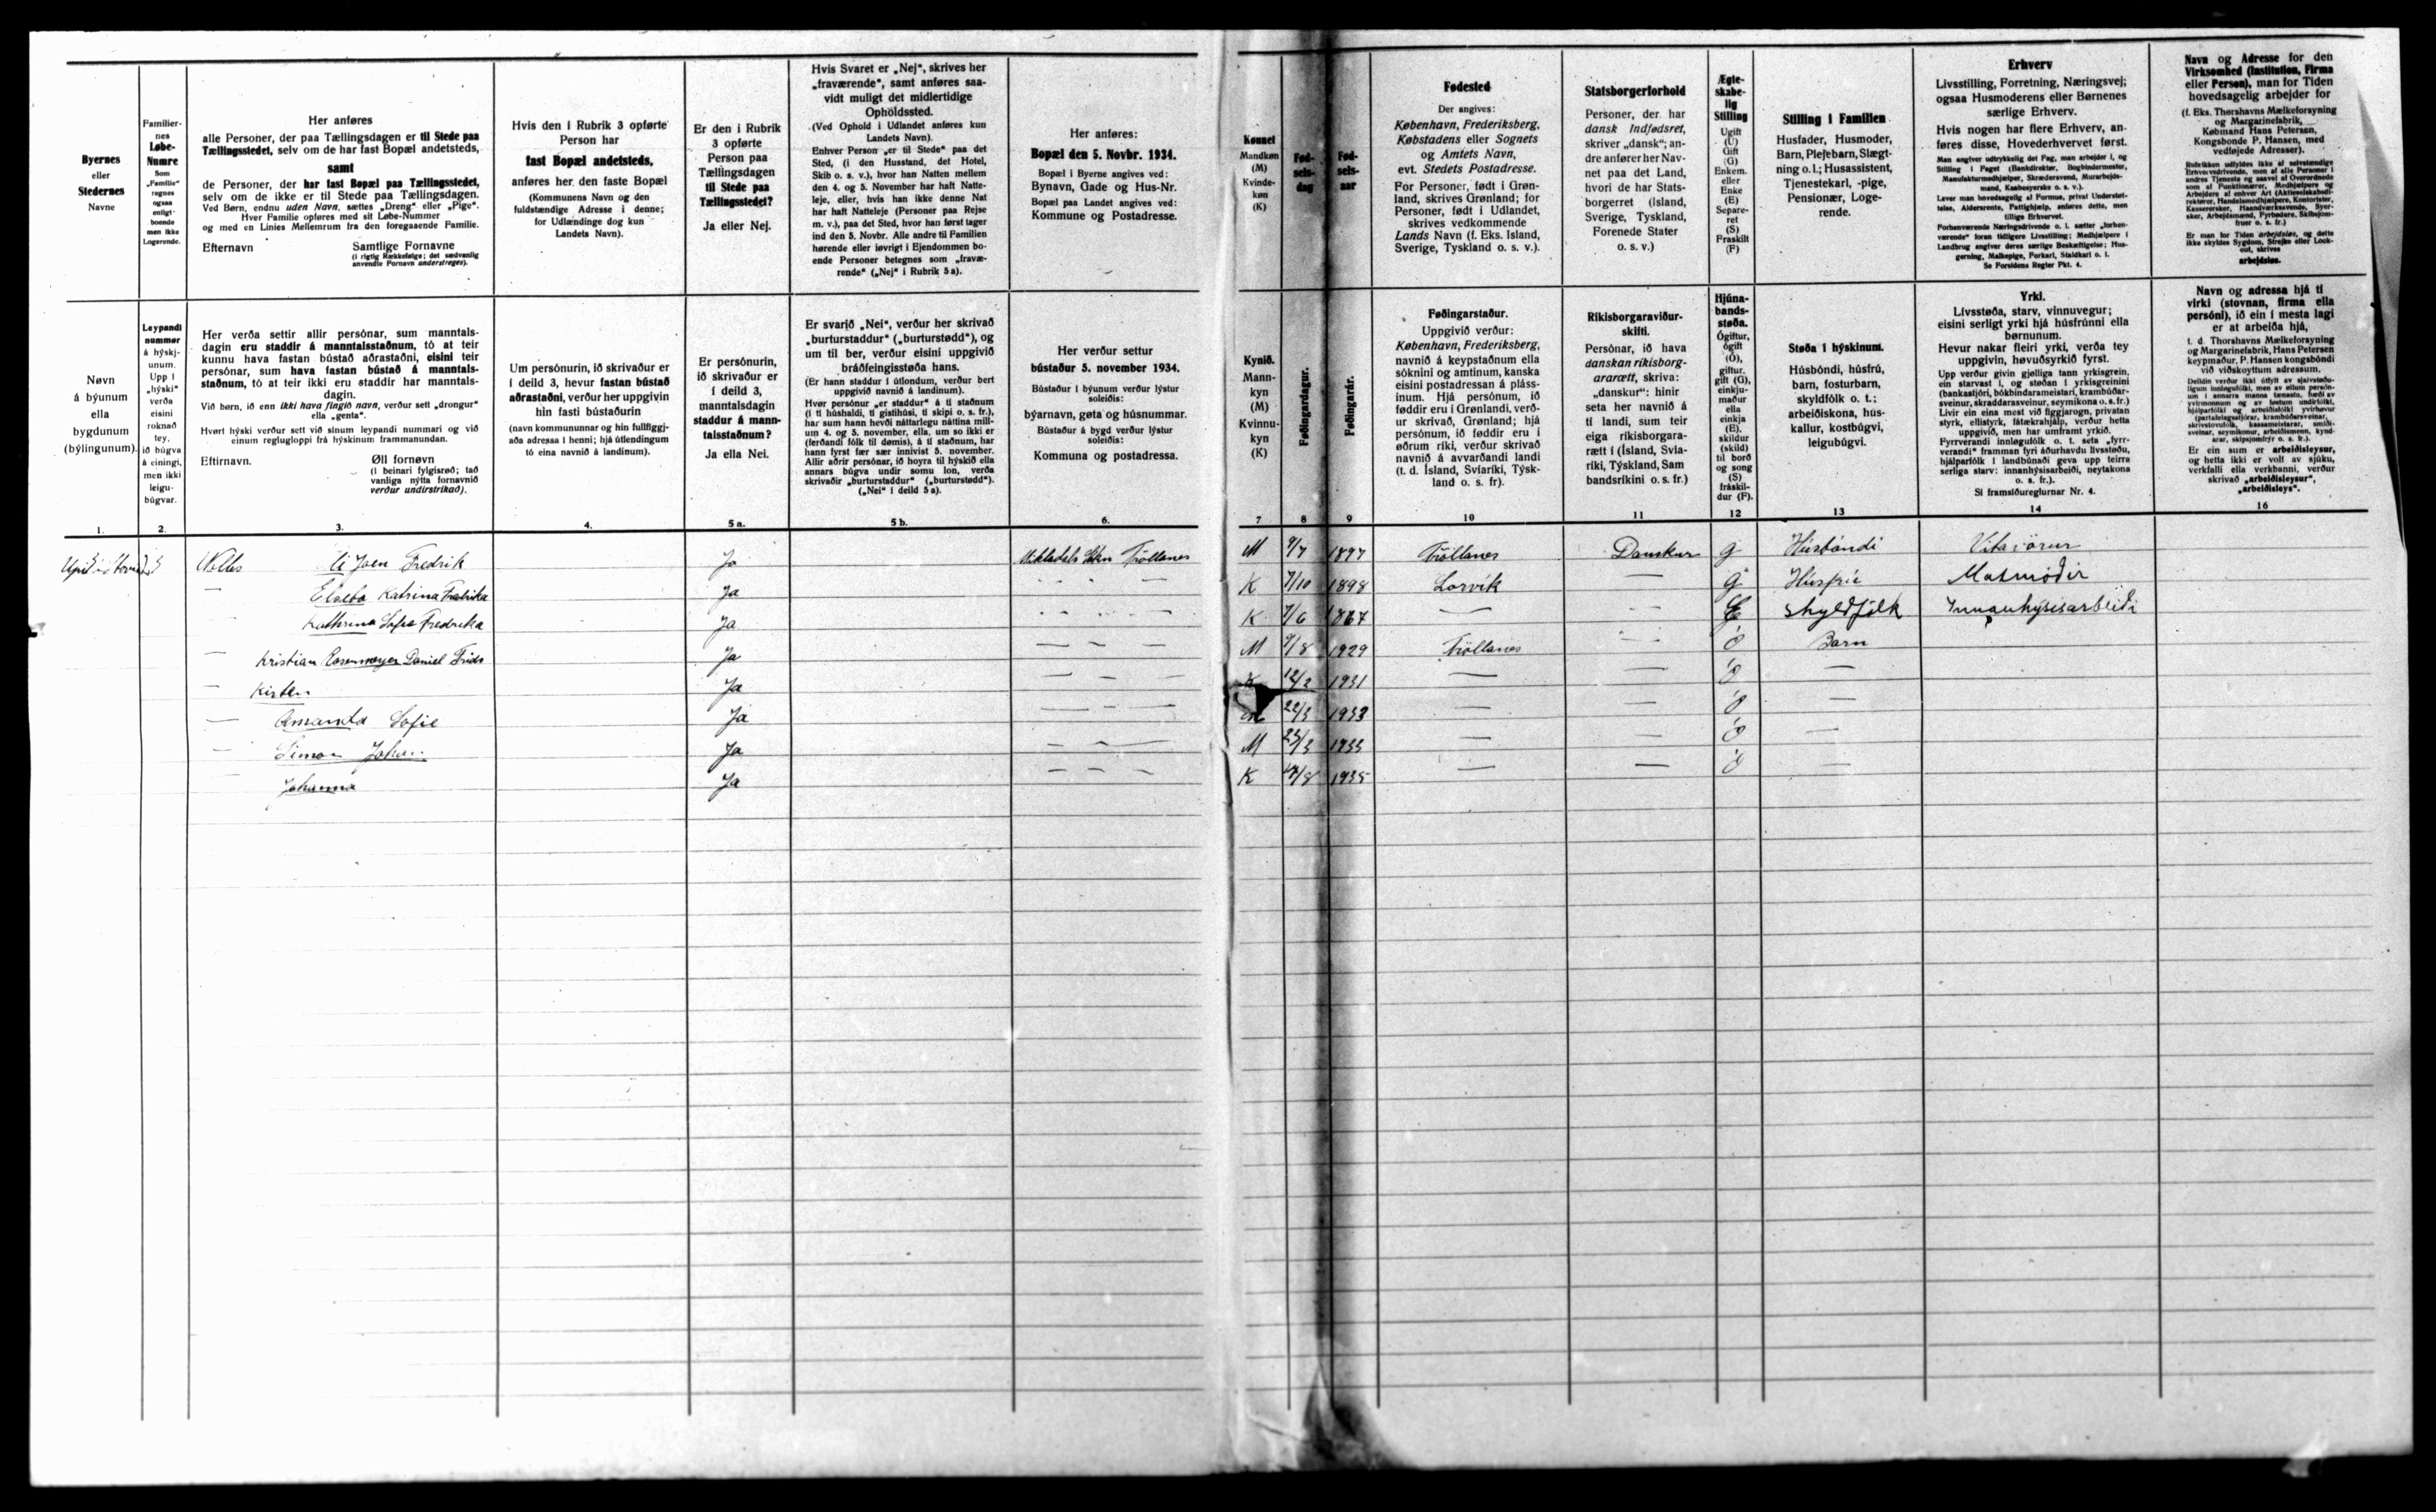 Byernes
eller
Stedernes
Navne
Familier-
nes
Løbe-
Numre
Som
„Familie"
regnes
ogsaa
enligt-
boende
men ikke
Logerende.
Her anføres
alle Personer, der paa Tællingsdagen er til Stede paa
Tællingsstedet, selv om de har fast Bopæl andetsteds,
samt
de Personer, der har fast Bopæl paa Tællingsstedet,
selv om de ikke er til Stede paa Tællingsdagen.
Ved Børn, endnu uden Navn, sættes „Dreng" eller „Pige".
Hver Familie opføres med sit Løbe-Nummer
og med en Linies Mellemrum fra den foregaaende Familie.
Efternavn Samtlige Fornavne
(i rigtig Rækkefølge; det sædvanlig
anvendte Fornavn understreges).
Hvis den i Rubrik 3 opførte
Person har
fast Bopæl andetsteds,
anføres her den faste Bopæl
(Kommunens Navn og den
fuldstændige Adresse i denne;
for Udlændinge dog kun
Landets Navn).
Er den i Rubrik
3 opførte
Person paa
Tællingsdagen
til Stede paa
Tællingsstedet?
Ja eller Nej.
Hvis Svaret er „Nej", skrives her
„fraværende", samt anføres saa-
vidt muligt det midlertidige
Opholdssted.
(Ved Ophold i Udlandet anføres kun
Landets Navn).
Enhver Person „er til Stede" paa det
Sted, (i den Husstand, det Hotel,
Skib o. s. v.), hvor han Natten mellem
den 4. og 5. November har haft Natte-
leje, eller, hvis han ikke denne Nat
har haft Natteleje (Personer paa Rejse
m. v.), paa det Sted, hvor han først tager
ind den 5. Novbr. Alle andre til Familien
hørende eller iøvrigt i Ejendommen bo-
ende Personer betegnes som „fravæ-
rende" („Nej" i Rubrik 5a).
Her anføres:
Bopæl den 5. Novbr. 1934.
Bopæl i Byerne angives ved:
Bynavn, Gade og Hus-Nr.
Bopæl paa Landet angives ved:
Kommune og Postadresse.
Kønnet
Mandkøn
(M)
Kvinde-
køn
(K)
Fød-
sels-
dag
Fød-
sels-
aar
Fødested
Der angives:
København, Frederiksberg,
Købstadens eller Sognets
og Amtets Navn,
evt. Stedets Postadresse.
For Personer, født i Grøn-
land, skrives Grønland; for
Personer, født i Udlandet,
skrives vedkommende
Lands Navn (f. Eks. Island,
Sverige, Tyskland o. s. v.).
Statsborgerforhold
Personer, der har
dansk Indfødsret,
skriver „dansk"; an-
dre anfører her Nav-
net paa det Land,
hvori de har Stats-
borgerret (Island,
Sverige, Tyskland,
Forenede Stater
o. s. v.)
Ægte-
skabe-
lig
Stilling
Ugift
(U)
Gift
(G)
Enkem.
eller
Enke
(E)
Separe-
ret
(S)
Fraskilt
(F)
Stilling i Familien
Husfader, Husmoder,
Barn, Plejebarn, Slægt-
ning o. l.; Husassistent,
Tjenestekarl, -pige,
Pensionær, Loge-
rende.
Erhverv
Livsstilling, Forretning, Næringsvej;
ogsaa Husmoderens eller Børnenes
særlige Erhverv.
Hvis nogen har flere Erhverv, an-
føres disse, Hovederhvervet først.
Man angiver udtrykkelig det Fag, man arbejder i, og
Stilling i Faget (Bankdirektør, Bogbindermester,
Manufakturmedhjælper, Skræddersvend, Murarbejds-
mand, Kaabesyerske o. s. v.).
Lever man hovedsagelig af Formue, privat Understøt-
telse, Aldersrente, Fattighjælp, anføres dette, men
tillige Erhvervet.
Se Forsidens Regler Pkt. 4.
Navn og Adresse for den
Virksomhed (Institution, Firma
eller Person), man for Tiden
hovedsagelig arbejder for
(f. Eks. Thorshavns Mælkeforsyning
og Margarinefabrik,
Købmand Hans Petersen,
Kongsbonde P. Hansen, med
vedføjede Adresser).
Er man for Tiden arbejdsløs, og dette
ikke skyldes Sygdom, Strejke eller Lock-
out, skrives
arbejdsløs.
Nøvn
á býunum
ella
bygdunum
(býlingunum).
Leypandi
nummer
á hýskj-
unum.
Upp í
„hýski"
verða
eisini
roknað
tey,
ið búgva
á einingi,
men ikki
leigu-
búgvar.
Her verða settir allir persónar, sum manntals-
dagin eru staddir á manntalsstaðnum, tó at teir
kunnu hava fastan bústað aðrastaðni, eisini teir
persónar, sum hava fastan bústað á manntals-
staðnum, tó at teir ikki eru staddir har manntals-
dagin.
Við børn, ið enn ikki hava fingið navn, verður sett „drongur"
ella „genta".
Hvørt hýski verður sett við sínum leypandi nummari og við
einum reglugloppi frá hýskinum frammanundan.
Eftirnavn. Øll fornøvn
(í beinari fylgisrøð; tað
vanliga nýtta fornavnið
verður undirstrikað).
Um persónurin, ið skrivaður er
í deild 3, hevur fastan bústað
aðrastaðni, verður her uppgivin
hin fasti bústaðurin
(navn kommununnar og hin fullfíggj-
aða adressa í henni; hjá útlendingum
tó eina navnið á landinum).
Er persónurin,
ið skrivaður er
í deild 3,
manntalsdagin
staddur á mann-
talsstaðnum?
Ja ella Nei.
Er svarið „Nei", verður her skrivað
„burturstaddur" („burturstødd"), og
um til ber, verður eisini uppgivið
bráðfeingisstøða hans.
(Er hann staddur í útlondum, verður bert
uppgivið navnið á landinum).
Hvør persónur „er staddur" á tí staðnum
(í tí húshaldi, tí gistihúsi, tí skipi o. s. fr.),
har sum hann hevði náttarlegu náttina mill-
um 4. og 5. november, ella, um so ikki er
(ferðandi fólk til dømis), á tí staðnum, har
hann fyrst fær sær innivist 5. november.
Allir aðrir persónar, ið hoyra til hýskið ella
annars búgva undir somu lon, verða
skrivaðir „burturstaddur" („burturstødd").
(„Nei" í deild 5a).
Her verður settur
bústaður 5. november 1934.
Bústaður í býunum verður lýstur
soleiðis:
býarnavn, gøta og húsnummar.
Bústaður á bygd verður lýstur
soleiðis:
Kommuna og postadressa.
Kynið.
Mann-
kyn
(M)
Kvinnu-
kyn
(K)
Føðingardagur.
Føðingarár.
Føðingarstaður.
Uppgivið verður:
København, Frederiksberg,
navnið á keypstaðnum ella
sóknini og amtinum, kanska
eisini postadressan á pláss-
inum. Hjá persónum, ið
føddir eru í Grønlandi, verð-
ur skrivað, Grønland; hjá
persónum, ið føddir eru í
øðrum ríki, verður skrivað
navnið á avvarðandi landi
(t. d. Ísland, Svíaríki, Týsk-
land o. s. fr).
Ríkisborgaraviður-
skifti.
Persónar, ið hava
danskan ríkisborg-
ararætt, skriva:
„danskur": hinir
seta her navnið á
tí landi, sum teir
eiga ríkisborgara-
rætt í (Ísland, Svía-
ríki, Týskland, Sam
bandsríkini o. s. fr.)
Hjúna-
bands-
støða.
Ógiftur,
ógift
(Ó),
giftur,
gift (G),
einkju-
maður
ella
einkja
(E).
skildur
(skild)
til borð
og song
(S)
fráskil-
dur (F).
Støða í hýskinum.
Húsbóndi, húsfrú,
barn, fosturbarn,
skyldfólk o. t.;
arbeiðiskona, hús-
kallur, kostbúgvi,
leigubúgvi.
Yrki.
Livsstøða, starv, vinnuvegur;
eisini serligt yrki hjá húsfrúnni ella
børnunum.
Hevur nakar fleiri yrki, verða tey
uppgivin, høvuðsyrkið fyrst.
Upp verður givin gjølliga tann yrkisgrein,
ein starvast í, og støðan í yrkisgreinini
(bankastjóri, bókbindarameistari, krambúðar-
sveinur, skraddarasveinur, seymikona o. s. fr.)
Sí framsíðureglurnar Nr. 4.
Navn og adressa hjá tí
virki (stovnan, firma ella
persóni), ið ein í mesta lagi
er at arbeiða hjá,
t. d. Thorshavns Mælkeforsyning
og Margarinefabrik, Hans Petersen
keypmaður, P. Hansen kongsbóndi
við viðskoyttum adressum.
Er ein sum er arbeiðisleysur,
og hetta ikki er volt av sjúku,
verkfalli ella verkbanni, verður
skrivað „arbeiðisleysur",
„arbeiðisleys".
1. 2. 3. 4. 5a. 5b. 6. 7 8 9 10 11 12 13 14 16
Joen Fredrik Ja Trøllanes M 9/7 1897 Trøllanes Danskur g Húsbóndi
— Elseba Katrina Fredrika Ja — — — K 7/10 1898 Lorvík — g Húsfrú Matmóðir
Kathrina Sofie Fredrika Ja — — — K 7/6 1867 — — E Skyldfólk Innanhýsisarbeiði
— Kristian Rosenmeyer Daniel Ja — — — M 9/8 1929 Trøllanes — ó Barn
— Kirsten Ja — — — K 12/2 1931 — — ó —
— Amanda Sofie Ja — — — 22/3 1933 — — ó —
— Simon Johan Ja — — — M 23/3 1933 — — ó —
— Johanna Ja — — — K 1935 — — ó —